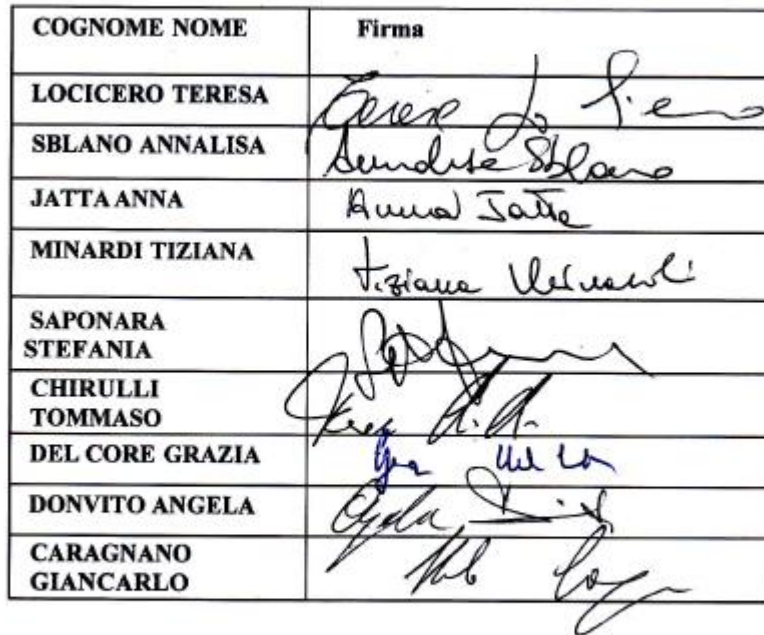 COGNOME NOME Firma
LOCICERO TERESA Teresa Lo
SBLANO ANNALISA Annalisa Sblano
JATTA ANNA Anna Jatta
MINARDI TIZIANA Tiziana Minardi
SAPONARA
STEFANIA
CHIRULLI
TOMMASO
DEL CORE GRAZIA
DONVITO ANGELA Angela
CARAGNANO
GIANCARLO